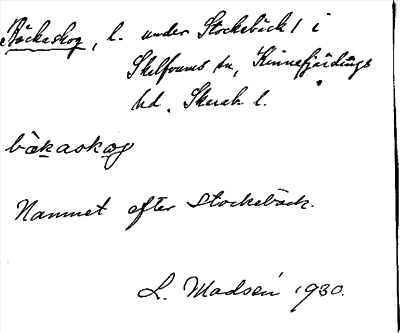 Bäckaskog, l. under Stockebäck 1 i
Skelfvums sn, Kinnefjärdings
hd, Skarab. l.
bäkaskog
Namnet efter Stockebäck.
L. Madsén 1930.